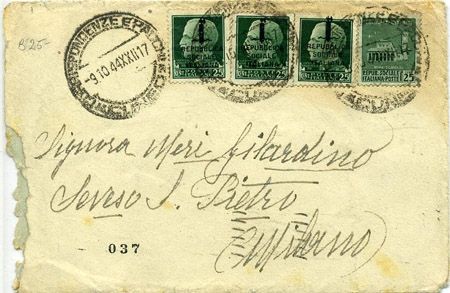 B 25-
CORRISPONDENZE E PACCHI
-9.10.44XXII.17
CUNEO
REPUBBLICA SOCIALE ITALIANA 25
REPUBBLICA SOCIALE ITALIANA 25
REPUBBLICA SOCIALE ITALIANA 25
REPUB. SOCIALE ITALIANA POSTE 25
Signora Meri Gilardino
Seveso S. Pietro
(Milano)
037